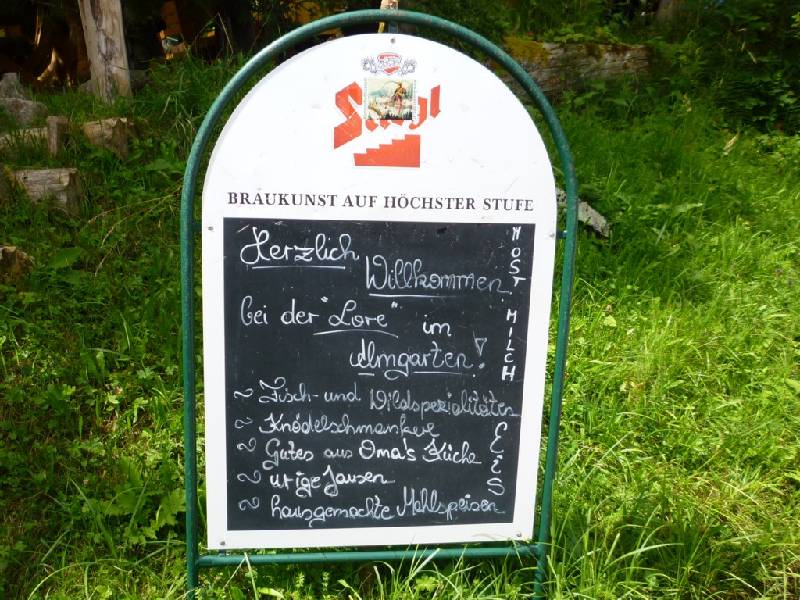 Stiegl
BRAUKUNST AUF HÖCHSTER STUFE
Herzlich
Willkommen
bei der "Lore" im
Almgarten!
~ Fisch- und Wildspezialitäten
~ Knödelschmankerl
~ Gutes aus Oma's Küche
~ urige Jausen
~ hausgemachte Mehlspeisen
MOST MILCH
EIS